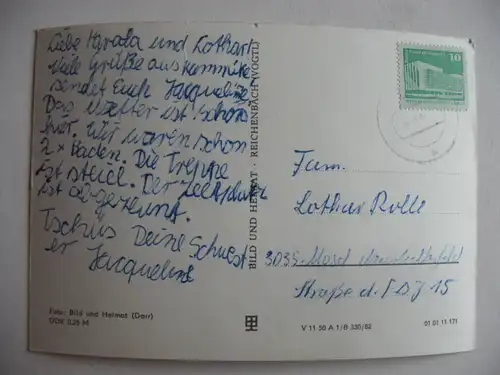 Liebe Karola und Lothar!
Viele Grüße aus
sendet Euch Jacqueline
Das Wetter ist schön
hier. Wir waren schon
2 x baden. Die Treppe
ist steil. Der Zeltplatz
ist abgezeunt.
Tschüs Deine Schwest
er Jacqueline
BILD UND HEIMAT · REICHENBACH (VOGTL)
10
Fam.
Lothar Rolle
3035
Straße d. FDJ 15
Foto: Bild und Heimat (Darr)
DDR 0,25 M
V 11 50 A 1/B 330/82
01 01 11 171